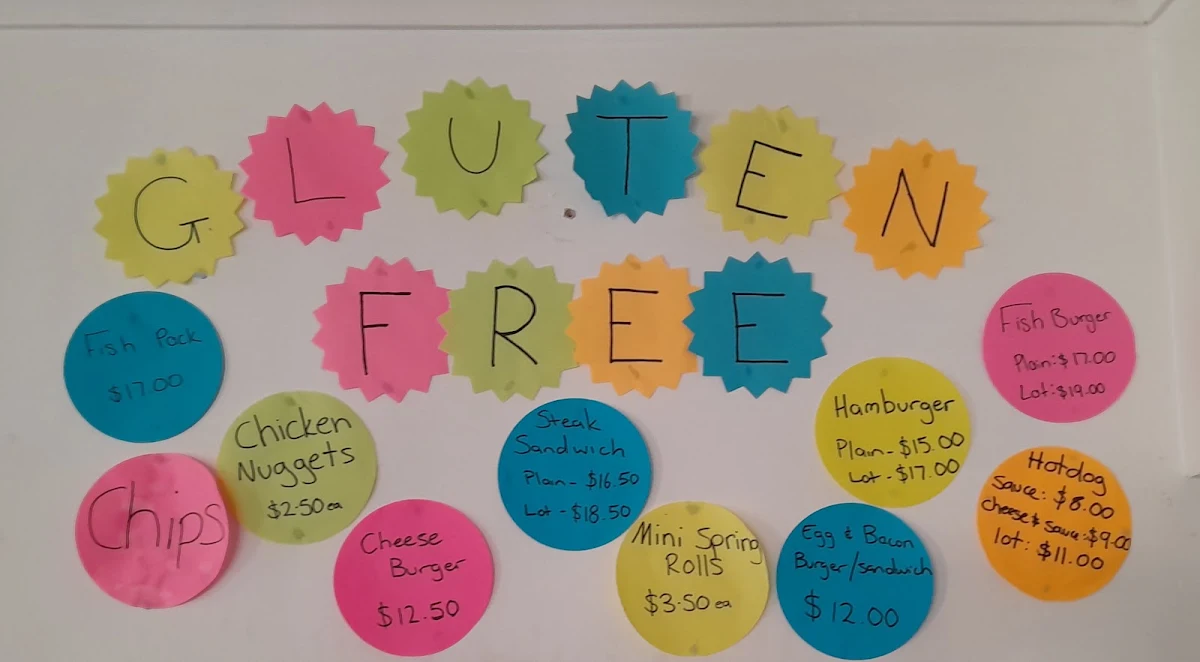 GLUTEN
FREE
Fish Pack
$17.00
Chicken
Nuggets
$2.50 ea
Chips
Cheese
Burger
$12.50
Steak
Sandwich
Plain - $16.50
Lot - $18.50
Mini Spring
Rolls
$3.50 ea
Egg & Bacon
Burger/sandwich
$12.00
Hamburger
Plain - $15.00
Lot - $17.00
Fish Burger
Plain: $17.00
Lot: $19.00
Hotdog
Sauce: $8.00
cheese & sauce: $9.00
lot: $11.00